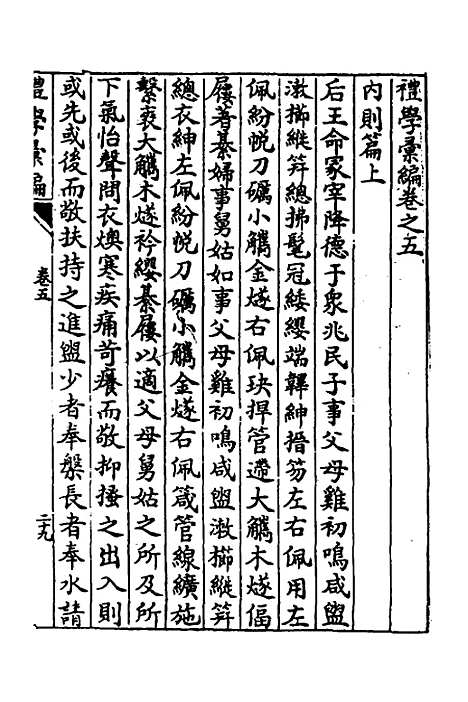 禮學彙編卷之五
內則篇上
后王命冢宰降德于衆兆民子事父母雞初鳴咸盥
漱櫛縰笄總拂髦冠緌纓端韠紳搢笏左右佩用左
佩紛帨刀礪小觿金燧右佩玦捍管遰大觿木燧偪
屨著綦婦事舅姑如事父母雞初鳴咸盥漱櫛縰笄
總衣紳左佩紛帨刀礪小觿金燧右佩箴管線纊施
縏袠大觿木燧衿纓綦屨以適父母舅姑之所及所
下氣怡聲問衣燠寒疾痛苛癢而敬抑搔之出入則
或先或後而敬扶持之進盥少者奉槃長者奉水請
禮學彙編
卷五
二十九